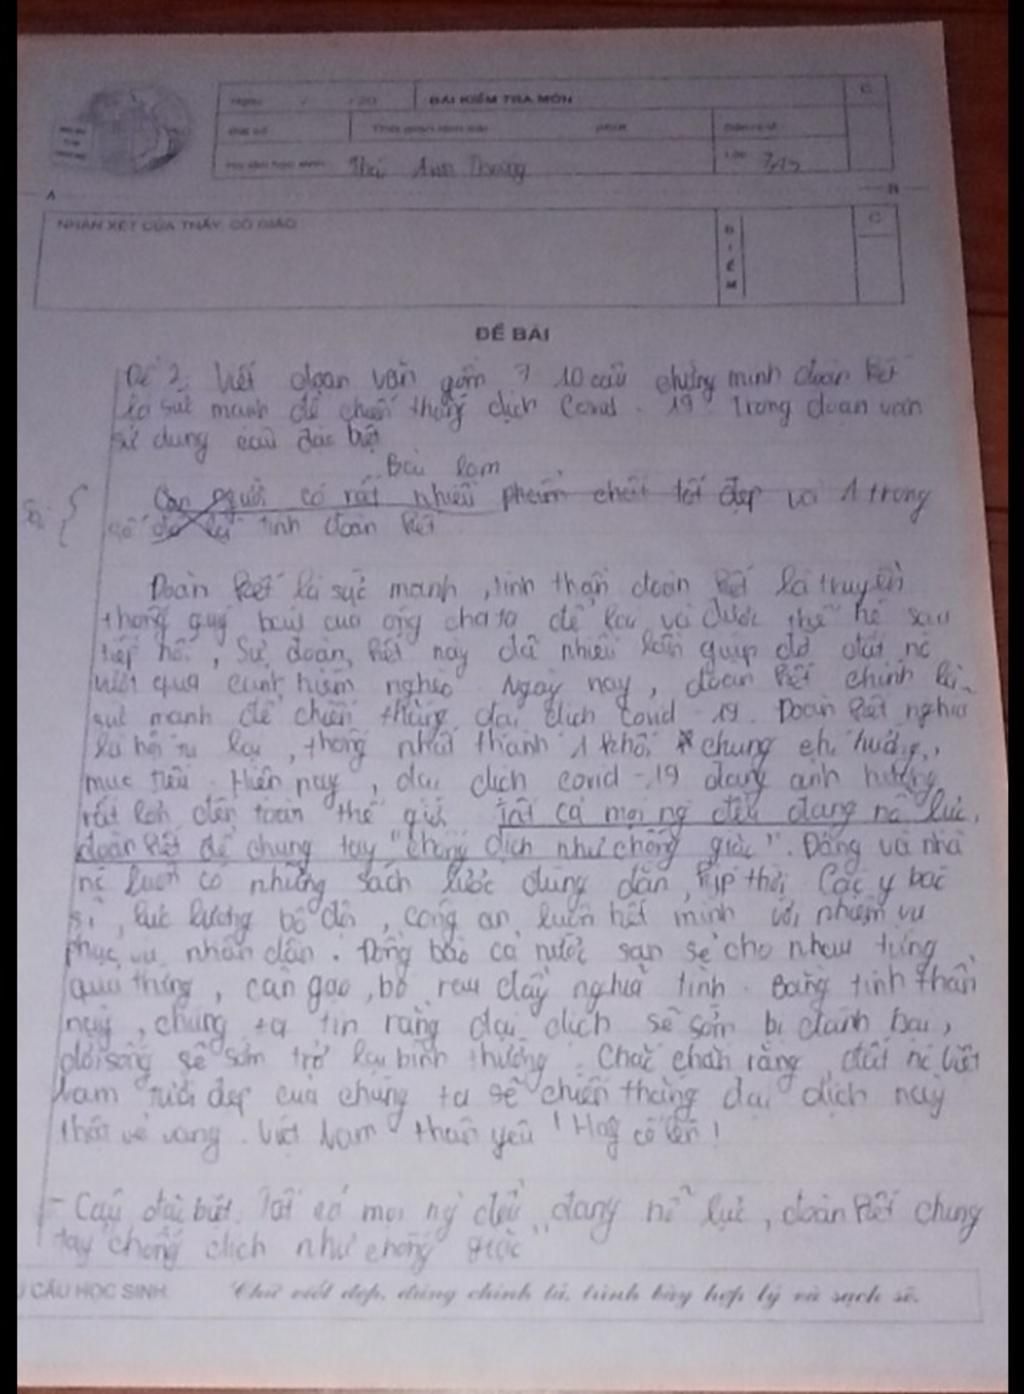 BÀI KIỂM TRA MÔN
C
Thái Anh
A B
NHẬN XÉT CỦA THẦY, CÔ GIÁO
ĐIỂM
C
ĐỀ BÀI
Đề 2. Viết đoạn văn gồm 7 10 câu chứng minh đoàn kết
là sức mạnh để chiến thắng dịch Covid - 19. Trong đoạn văn
sử dụng câu đặc biệt
Bài làm
Con người có rất nhiều phẩm chất tốt đẹp và 1 trong
số đó là tinh đoàn kết
Đoàn kết là sức mạnh, tinh thần đoàn kết là truyền
thống quý báu của ông cha ta để lại và được thế hệ sau
tiếp nối, Sự đoàn kết này đã nhiều lần giúp đỡ đất nc
vượt qua cảnh hiểm nghèo. Ngày nay, đoàn kết chính là
sức mạnh để chiến thắng đại dịch covid - 19. Đoàn kết nghĩa
là hội tụ lại, thống nhất thành 1 khối chung chí hướng,
mục tiêu. Hiện nay, đại dịch covid - 19 đang ảnh hưởng
rất lớn đến toàn thế giới. Tất cả mọi ng đều đang nỗ lực,
đoàn kết để chung tay "chống dịch như chống giặc". Đảng và nhà
nc luôn có những sách lược đúng đắn, kịp thời. Các y bác
sĩ, lực lượng bộ đội, công an luôn hết mình với nhiệm vụ
phục vụ nhân dân. Đồng bào cả nước san sẻ cho nhau từng
quả trứng, cân gạo, bó rau đầy nghĩa tình. Bằng tinh thần
này, chúng ta tin rằng đại dịch sẽ sớm bị đánh bại,
đời sống sẽ sớm trở lại bình thường. Chắc chắn rằng, đất nc Việt
Nam tươi đẹp của chúng ta sẽ chiến thắng đại dịch này
thật vẻ vang. Việt Nam thân yêu! Hãy cố lên!
- Câu đặc biệt: Tất cả mọi ng đều đang nỗ lực, đoàn kết chung
tay "chống dịch như chống giặc"
CẦU HỌC SINH: Chữ viết đẹp, đúng chính tả, trình bày hợp lý và sạch sẽ.